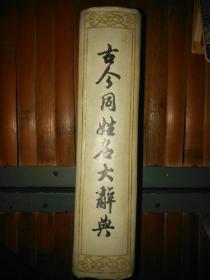 古今同姓名大辭典